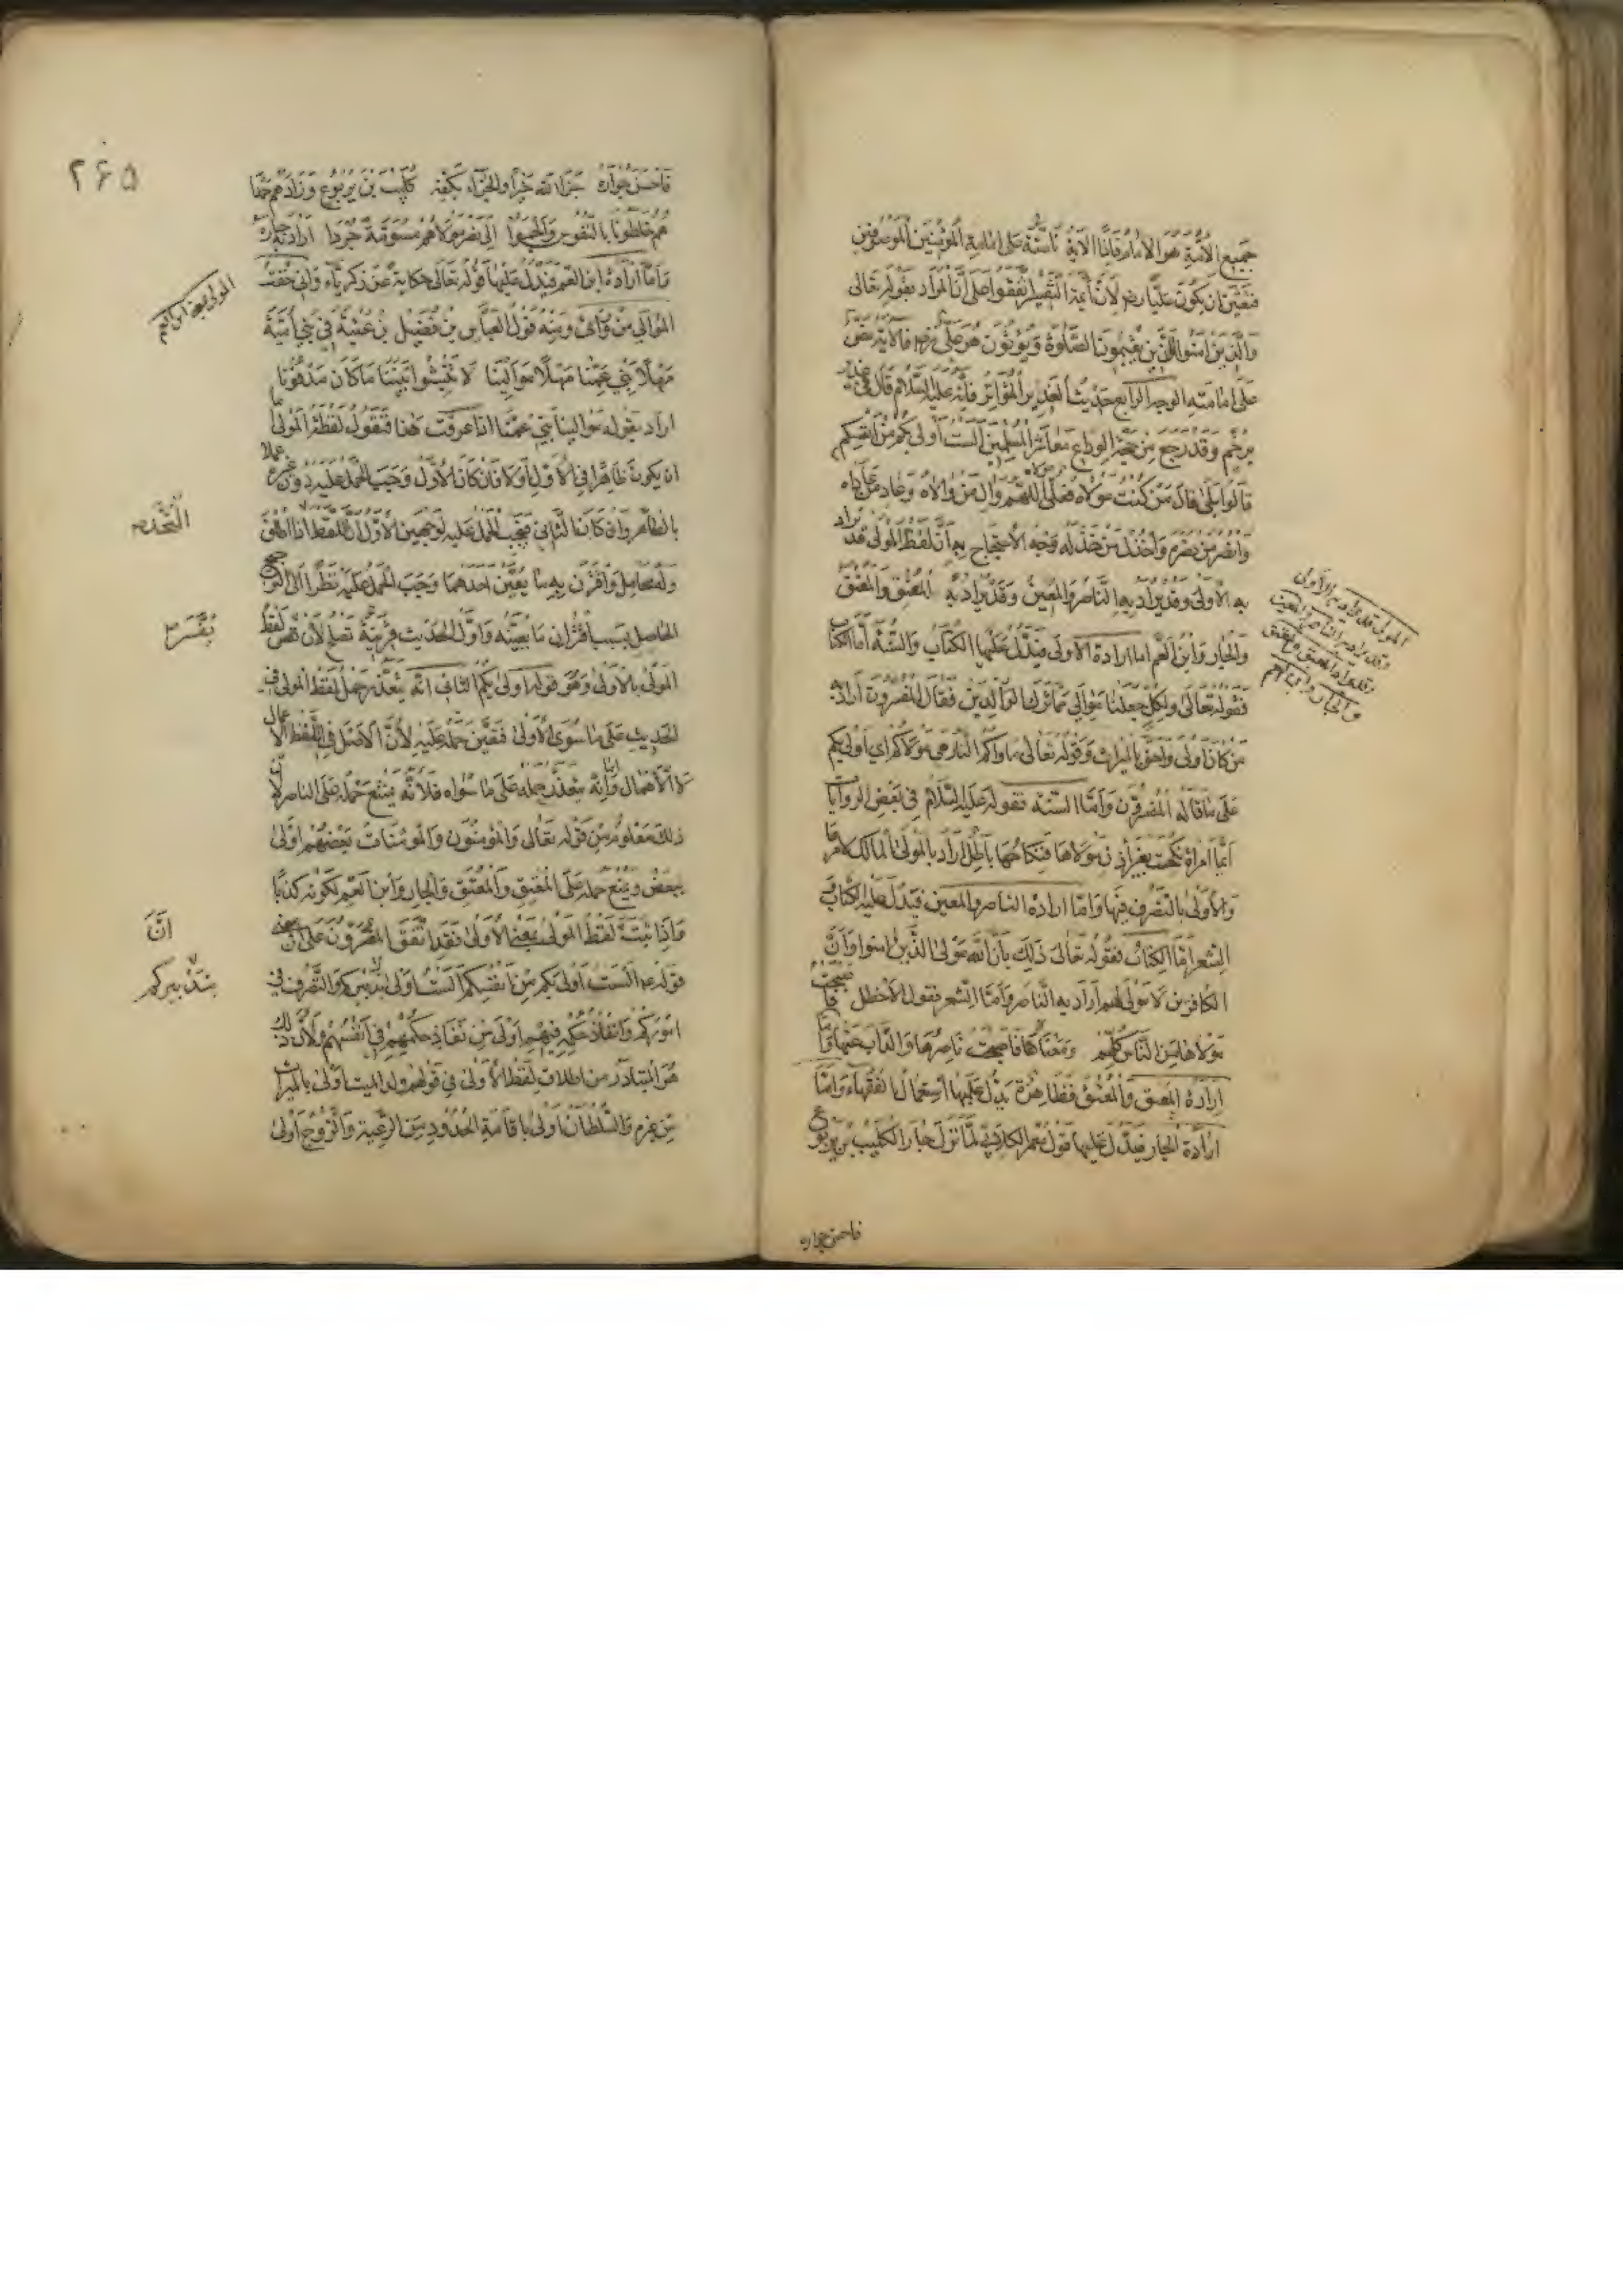 جميع الأمة هو الإمام فإذا الآية ناصة على إمامة المؤمنين الموصوفين
فتعين أن يكون عليا رض لأن أئمة التفسير اتفقوا على أن المراد بقوله تعالى
والذين آمنوا الذين يقيمون الصلوة ويؤتون هو علي فالآية نص
على إمامته الوجه الرابع حديث الغدير المتواتر فإنه عليه السلام قال في غدير
خم وقد رجع من حجة الوداع معاشر المسلمين ألست أولى بكم من أنفسكم
قالوا بلى قال من كنت مولاه فعلي اللهم وال من والاه وعاد من عاداه
وانصر من نصره واخذل من خذله وجه الاحتجاج به أن لفظ المولى قد يراد
به الأولى وقد يراد به الناصر والمعين وقد يراد به المعتق والمعتق
والجار وابن العم أما إرادة الأولى فيدل عليها الكتاب والسنة أما الكتاب
فقوله تعالى ولكل جعلنا موالي مما ترك الوالدين فقال المفسرون أراد
من كان أولى وأحق بالميراث وقوله تعالى مأواكم النار هي مولاكم أي أولى بكم
على ما قاله المفسرون وأما السنة فقوله عليه السلام في بعض الروايات
أيما امرأة نكحت بغير إذن مولاها فنكاحها باطل أراد بالمولى المالك لأمرها
والأولى بالتصرف فيها وأما إرادة الناصر والمعين فيدل عليه الكتاب و
الشعر أما الكتاب فقوله تعالى ذلك بأن الله مولى الذين آمنوا وأن
الكافرين لا مولى لهم أراد به الناصر وأما الشعر فقول الأخطل فأصبحت
مولاها من الناس كلهم ومعناه فأصبحت ناصرها والذاب عنها وأما
إرادة المعتق والمعتق فظاهرة يدل عليها استعمال الفقهاء وأما
إرادة الجار فيدل عليها قول الكلابي لما نزل جار الكليب بن يربوع
فأحسن جواره
المولى قد يراد به الأولى
وقد يراد به الناصر والمعين
وقد يراد المعتق والمعتق
والجار وابن العم
٢٦٥
فأحسن جواره جزا الله خيرا والجزاء بكفه كليب بن يربوع وزادهم حمدا
هم خلطونا بالنفوس وألجموا إلى نصر مولاهم مسومة جردا أراد به جاره
وأما إرادة ابن العم فيدل عليها قوله تعالى حكاية عن زكرياء وإني خفت
الموالي من ورائي ومنه قول العباس بن فضيل بن عتبة في بني أمية
مهلا بني عمنا مهلا موالينا لا تنبشوا بيننا ما كان مدفونا
أراد بقوله موالينا بني عمنا إذا عرفت هذا فنقول لفظة المولى إما
أن يكون ظاهرا في الأولى أو لا فإن كان الأول وجب الحمل عليه دون غيره عملا
بالظاهر وإن كان الثاني فيجب الحمل عليه لوجهين الأول أن اللفظ إذا أطلق
وله محامل واقترن به ما يعين أحدهما وجب الحمل عليه نظرا إلى الترجيح
الحاصل بسبب اقتران ما يعينه وأول الحديث قرينة تصلح لأن تفسر لفظ
المولى بالأولى وهو قوله أولى بكم الثاني أنه يتعذر حمل لفظ المولى في
الحديث على ما سوى الأولى فتعين حمله عليه لأن الأصل في اللفظ الإعمال
لا الإهمال وإنه يتعذر حمله على ما سواه فلأنه يمتنع حمله على الناصر لأن
ذلك معلوم من قوله تعالى والمؤمنون والمؤمنات بعضهم أولى
ببعض ويمتنع حمله على المعتق والمعتق والجار وابن العم لكونه كذبا
وإذا ثبت لفظ المولى بمعنى الأولى فقد اتفق المفسرون على أن معنى
قوله ألست أولى بكم من أنفسكم ألست أولى بتدبيركم والتصرف في
أموركم وإنفاذ حكمه فيهم أولى من نفاذ حكمهم في أنفسهم ولأن ذلك
هو المتبادر من إطلاق لفظ الأولى في قولهم ولد الميت أولى بالميراث
من غيره والسلطان أولى بإقامة الحدود من الرعية والزوج أولى
المولى بمعنى ابن العم
يفسر
أن
بتدبيركم